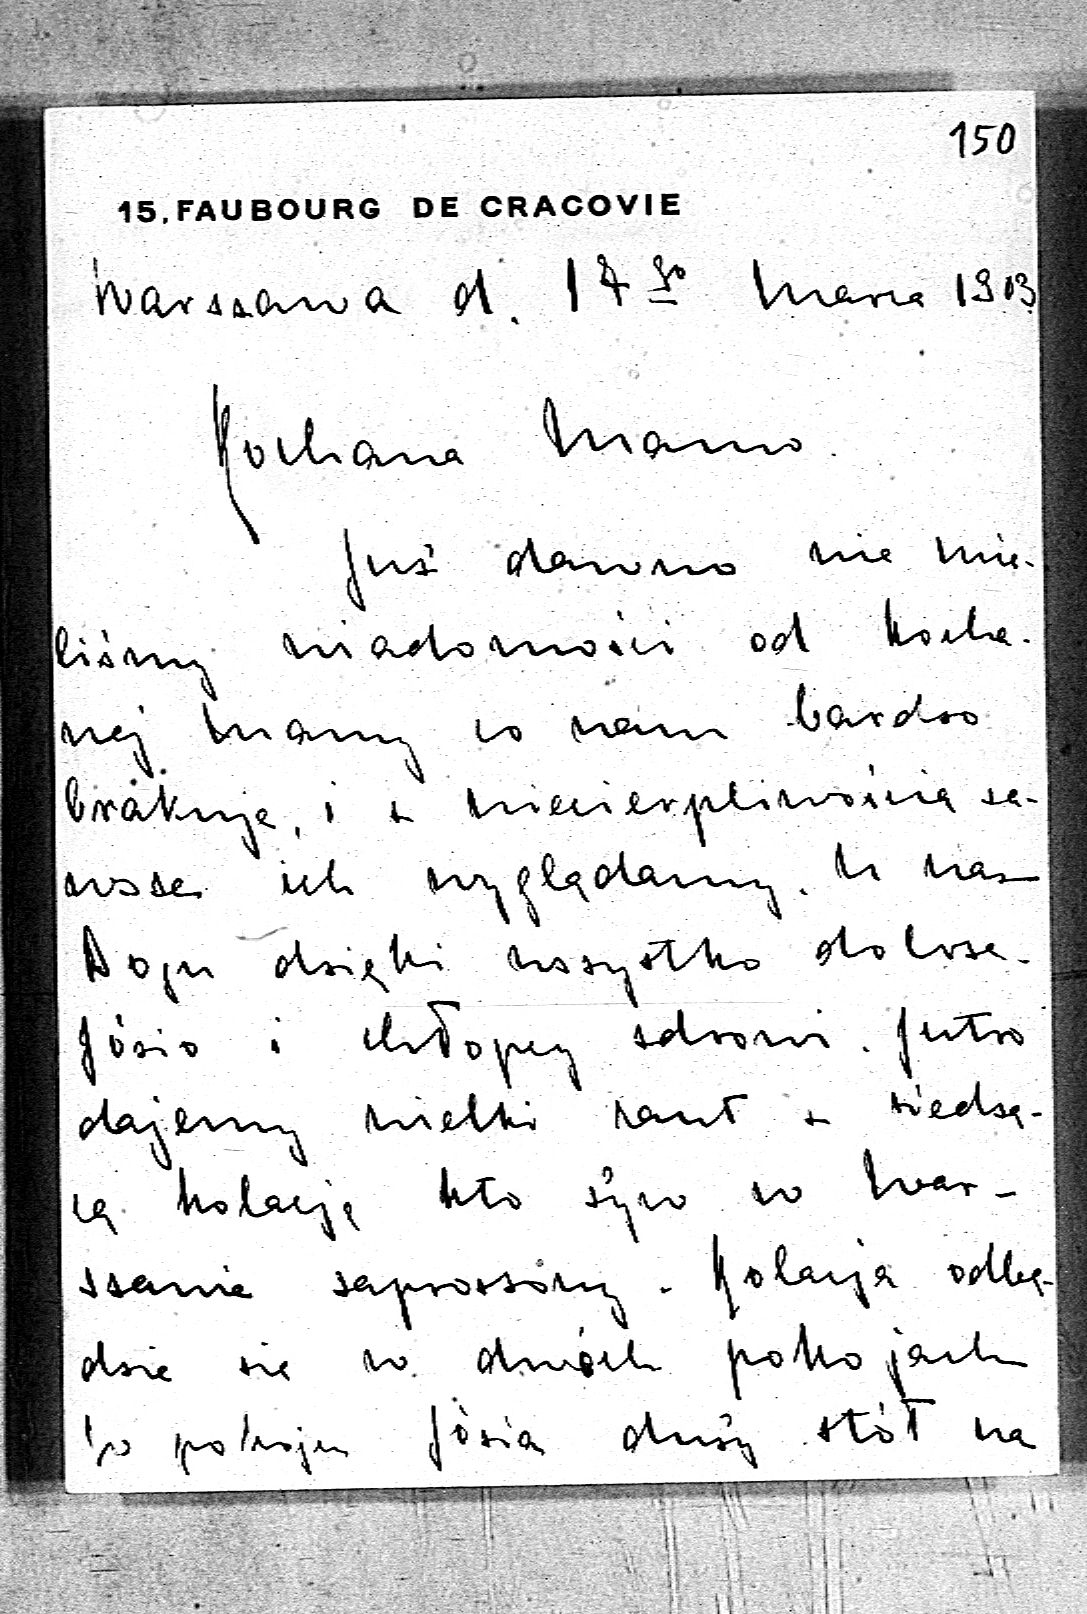 150
15, FAUBOURG DE CRACOVIE
Warszawa d. 17go Marca 1903
Kochana Mamo.
Już dawno nie mie-
liśmy wiadomości od kocha-
nej Mamy co nam bardzo
brakuje, i z niecierpliwością za-
wsze ich wyglądamy. U nas
Bogu dzięki wszystko dobrze.
Józio i chłopcy zdrowi. Jutro
dajemy wielki raut z siedzą-
cą kolacją kto żyw w War-
szawie zaproszony. Kolacja odbę-
dzie się w dwóch pokojach
w pokoju Józia duży stół na